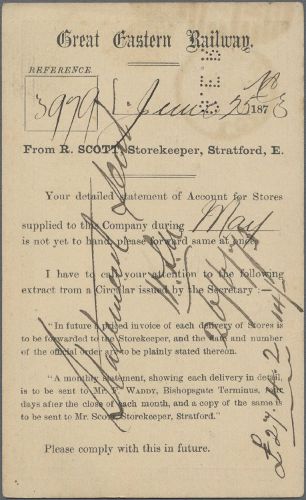 Great Eastern Railway.
REFERENCE.
3979
June 25 1878
From R. SCOTT, Storekeeper, Stratford, E.
Your detailed statement of Account for Stores
supplied to the Company during May
is not yet to hand, please forward same at once.
I have to call your attention to the following
extract from a Circular issued by the Secretary:—
"In future a priced invoice of each delivery of Stores is
to be forwarded to the Storekeeper, and the date and number
of the official order are to be plainly stated thereon.
"A monthly statement, showing each delivery in detail,
is to be sent to Mr. WADDY, Bishopsgate Terminus, four
days after the close of each month, and a copy of the same is
to be sent to Mr. Scott, Storekeeper, Stratford."
Please comply with this in future.
Statement